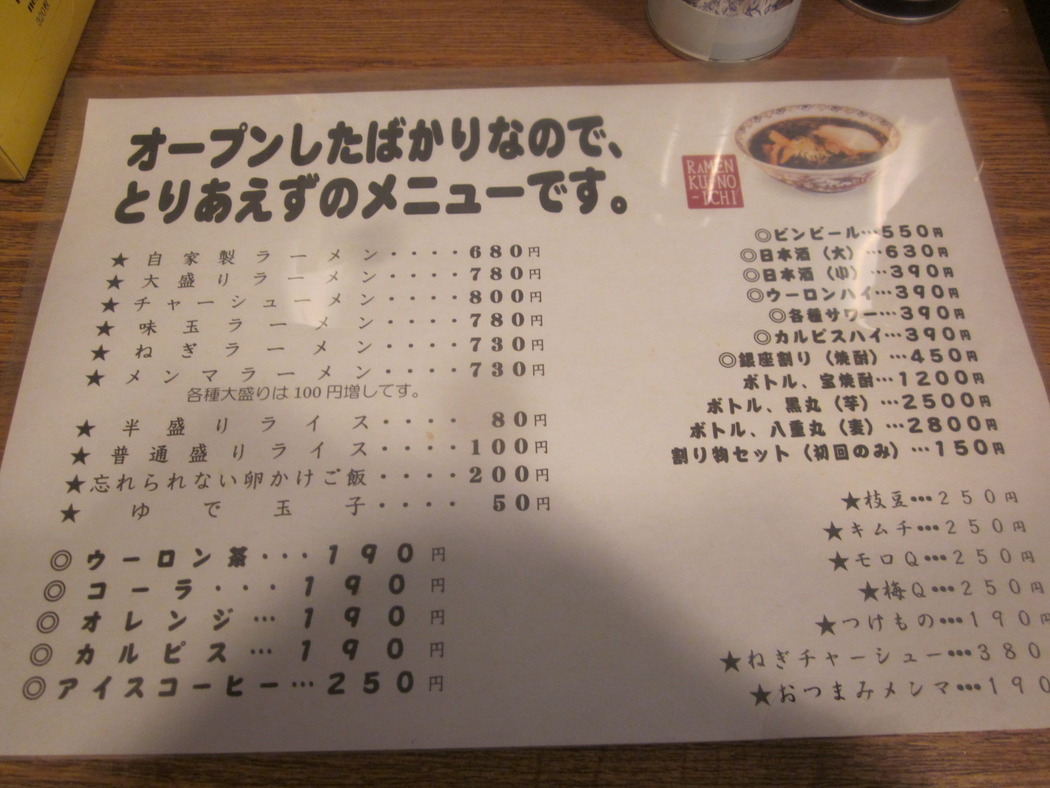 オープンしたばかりなので、
とりあえずのメニューです。
RAMEN
KUONO
-ICHI
★自家製ラーメン・・・・680円
★大盛りラーメン・・・・780円
★チャーシューメン・・・・800円
★味玉ラーメン・・・・780円
★ねぎラーメン・・・・730円
★メンマラーメン・・・・730円
各種大盛りは100円増してす。
★半盛りライス・・・・80円
★普通盛りライス・・・・100円
★忘れられない卵かけご飯・・・・200円
★ゆで玉子・・・・50円
◎ウーロン茶・・・190円
◎コーラ・・・190円
◎オレンジ…190円
◎カルピス…190円
◎アイスコーヒー…250円
◎ビンビール…550円
◎日本酒（大）…630円
◎日本酒（小）…390円
◎ウーロンハイ…390円
◎各種サワー…390円
◎カルピスハイ…390円
◎銀座割り（焼酎）…450円
ボトル、宝焼酎…1200円
ボトル、黒丸（芋）…2500円
ボトル、八重丸（麦）…2800円
割り物セット（初回のみ）…150円
★枝豆•••250円
★キムチ•••250円
★モロQ•••250円
★梅Q•••250円
★つけもの•••190円
★ねぎチャーシュー•••380
★おつまみメンマ•••190